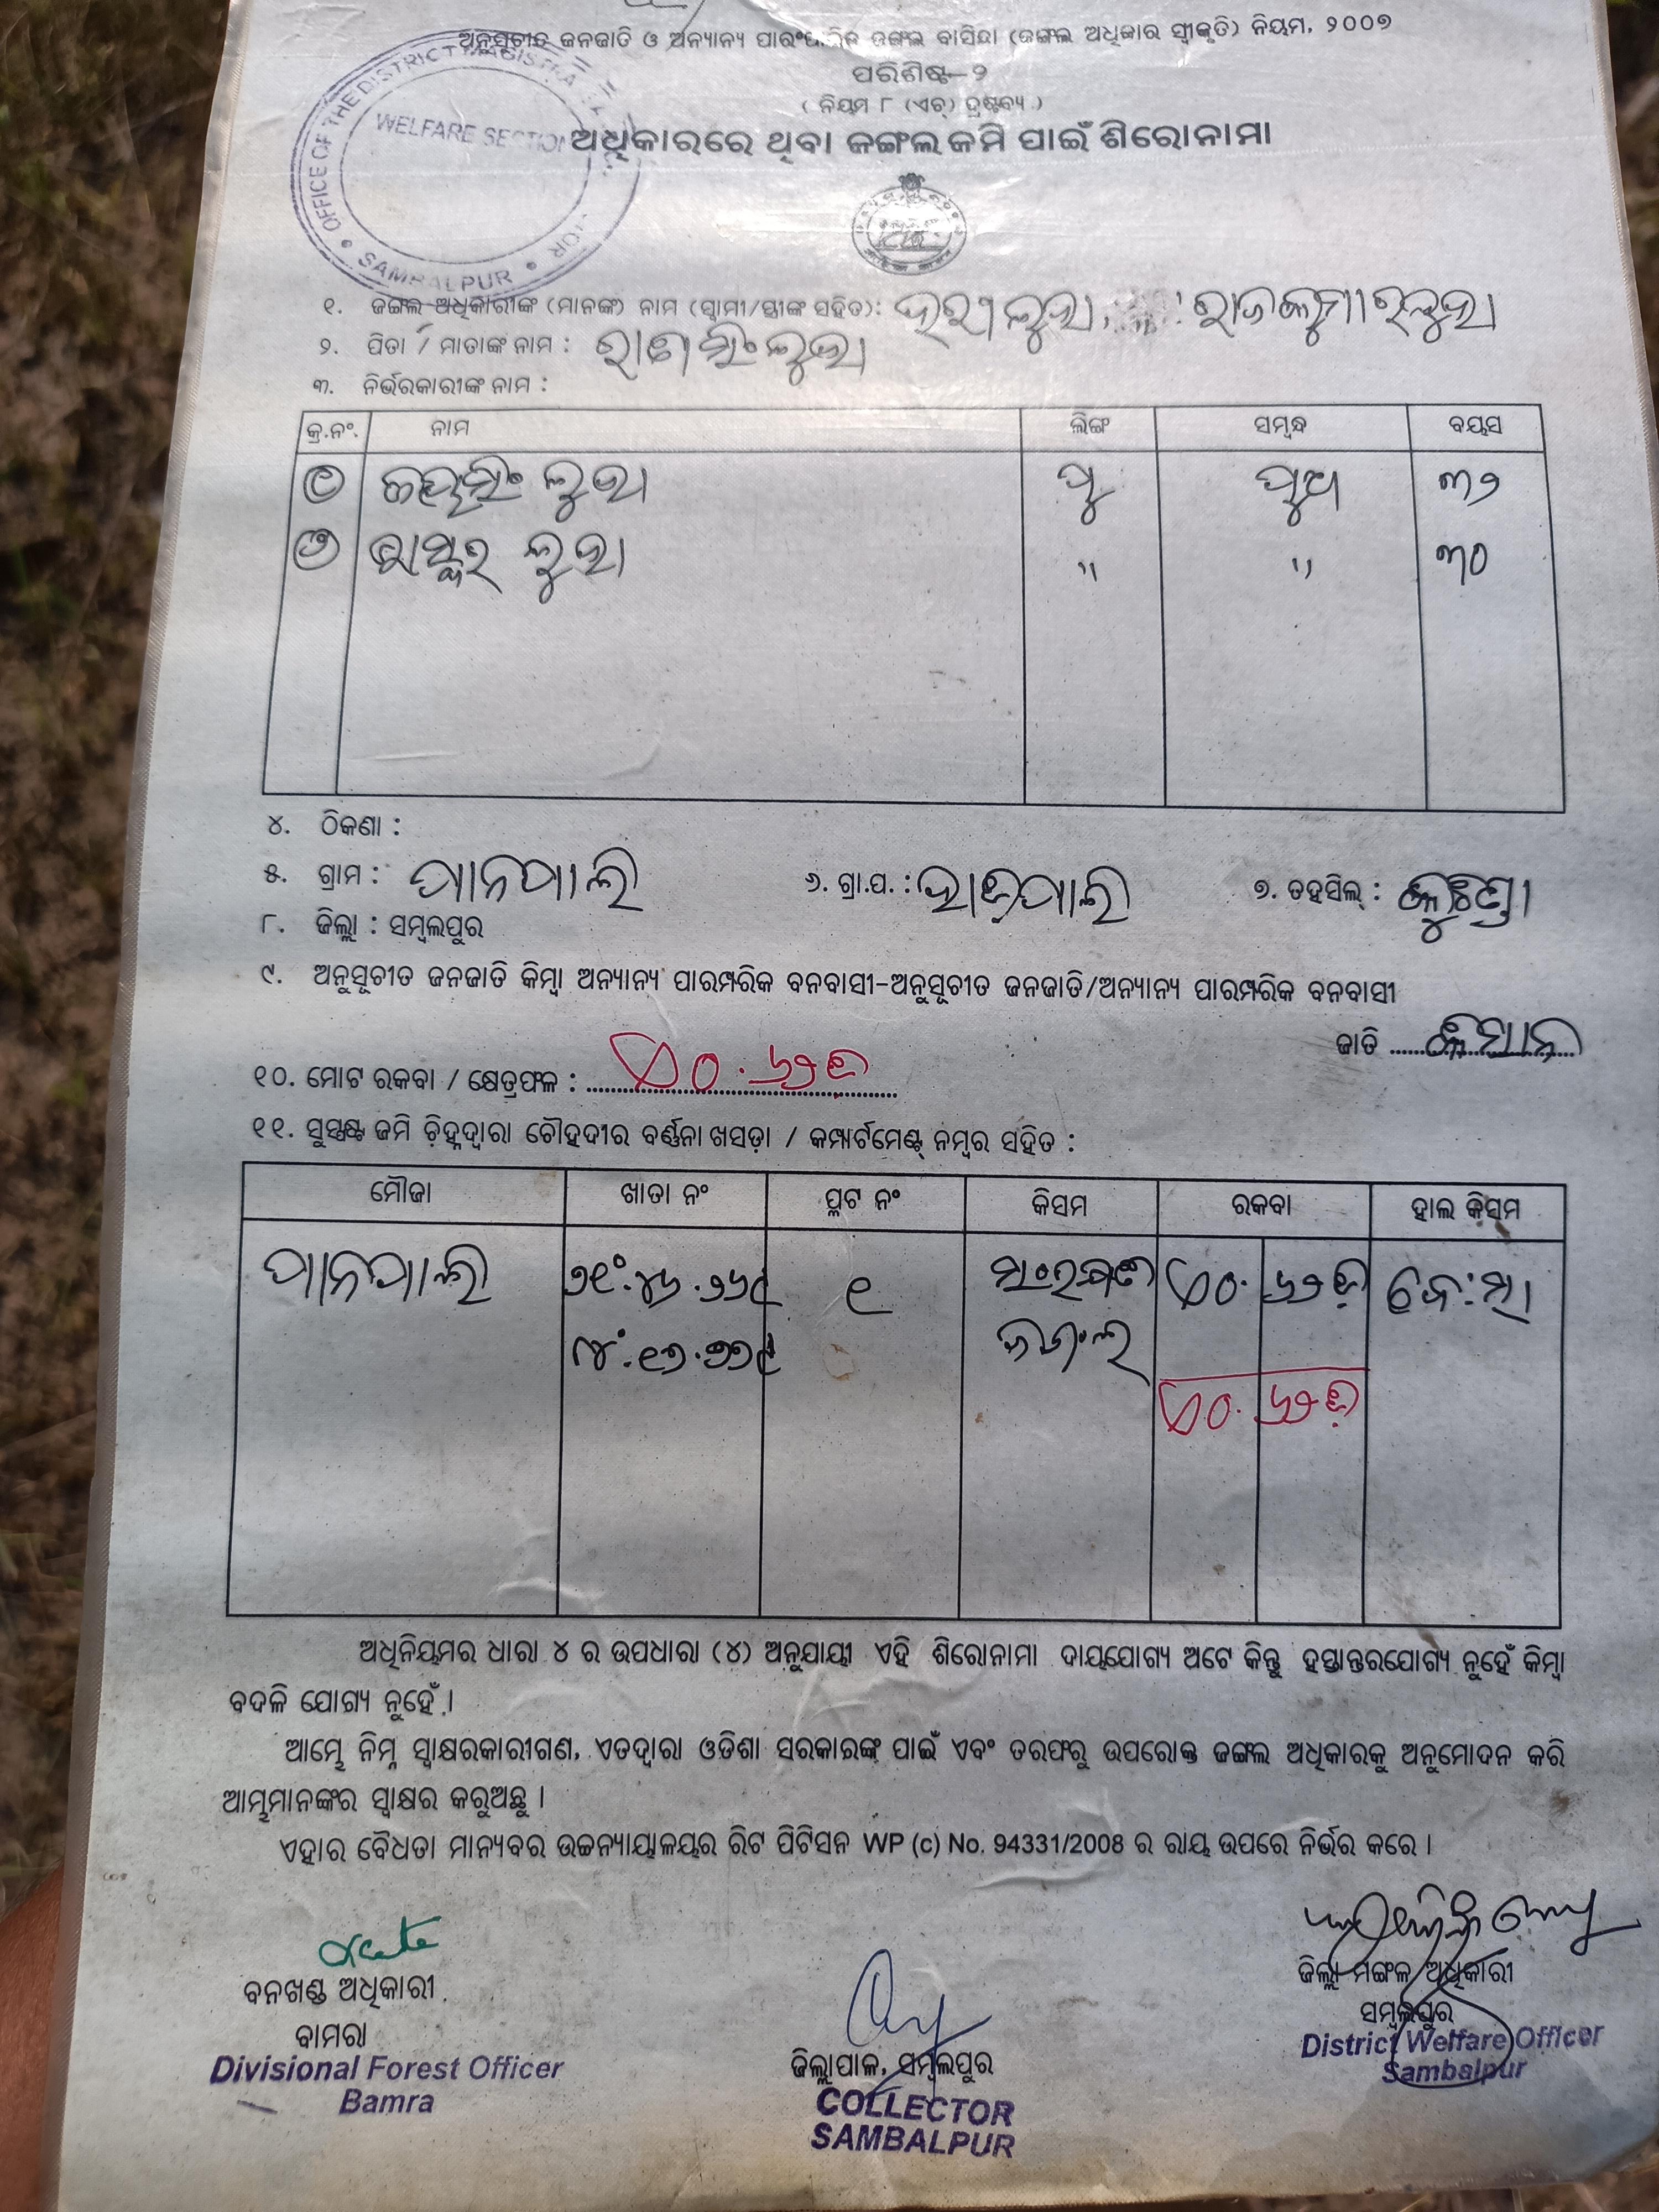 ଅନୁସୂଚୀତ ଜନଜାତି ଓ ଅନ୍ୟାନ୍ୟ ପାରଂପାରିକ ଜଙ୍ଗଲ ବାସିନ୍ଦା (ଜଙ୍ଗଲ ଅଧିକାର ସ୍ୱୀକୃତି) ନିୟମ, ୨୦୦୭
ପରିଶିଷ୍ଟ-୨
( ନିୟମ ୮ (ଏଚ୍) ଦ୍ରଷ୍ଟବ୍ୟ )
ଅଧିକାରରେ ଥିବା ଜଙ୍ଗଲ ଜମି ପାଇଁ ଶିରୋନାମା
OFFICE OF THE DISTRICT MAGISTRA
WELFARE SECTION
SAMBALPUR
୧. ଜଙ୍ଗଲ ଅଧିକାରୀଙ୍କ (ମାନଙ୍କ) ନାମ (ସ୍ୱାମୀ/ସ୍ତ୍ରୀଙ୍କ ସହିତ): ଲୁହା, ରାଜକୁମାର ଲୁହା
୨. ପିତା / ମାତାଙ୍କ ନାମ : ଲୁହା
୩. ନିର୍ଭରକାରୀଙ୍କ ନାମ :
କ୍ର.ନଂ. ନାମ ଲିଙ୍ଗ ସମ୍ବନ୍ଧ ବୟସ
୧ ଜୟସିଂ ଲୁହା ପୁ ପୁଅ ୩୨
୨ ଲୁହା " " ୩୦
୪. ଠିକଣା :
୫. ଗ୍ରାମ : ପାନପାଲି ୬. ଗ୍ରା.ପ. : ୭. ତହସିଲ୍ : କୁଚିଣ୍ଡା
୮. ଜିଲ୍ଲା : ସମ୍ବଲପୁର
୯. ଅନୁସୂଚୀତ ଜନଜାତି କିମ୍ବା ଅନ୍ୟାନ୍ୟ ପାରମ୍ପରିକ ବନବାସୀ-ଅନୁସୂଚୀତ ଜନଜାତି/ଅନ୍ୟାନ୍ୟ ପାରମ୍ପରିକ ବନବାସୀ
ଜାତି ..... କିସାନ
୧୦. ମୋଟ ରକବା / କ୍ଷେତ୍ରଫଳ : ଏ୦.୬୨ଡି
୧୧. ସୁସ୍ପଷ୍ଟ ଜମି ଚିହ୍ନଦ୍ୱାରା ଚୌହଦୀର ବର୍ଣ୍ଣନା ଖସଡ଼ା / କମ୍ପାର୍ଟମେଣ୍ଟ୍ ନମ୍ବର ସହିତ :
ମୌଜା ଖାତା ନଂ ପ୍ଳଟ ନଂ କିସମ ରକବା ହାଲ କିସମ
ପାନପାଲି ୧ ସଂରକ୍ଷିତ ଏ୦. ୬୨ଡି
ଜଙ୍ଗଲ
ଏ୦. ୬୨ଡି
ଅଧିନିୟମର ଧାରା ୪ ର ଉପଧାରା (୪) ଅନୁଯାୟୀ ଏହି ଶିରୋନାମା ଦାୟଯୋଗ୍ୟ ଅଟେ କିନ୍ତୁ ହସ୍ତାନ୍ତରଯୋଗ୍ୟ ନୁହେଁ କିମ୍ବା
ବଦଳି ଯୋଗ୍ୟ ନୁହେଁ ।
ଆମ୍ଭେ ନିମ୍ନ ସ୍ୱାକ୍ଷରକାରୀଗଣ, ଏତଦ୍ଦ୍ୱାରା ଓଡିଶା ସରକାରଙ୍କ ପାଇଁ ଏବଂ ତରଫରୁ ଉପରୋକ୍ତ ଜଙ୍ଗଲ ଅଧିକାରକୁ ଅନୁମୋଦନ କରି
ଆମ୍ଭମାନଙ୍କର ସ୍ୱାକ୍ଷର କରୁଅଛୁ ।
ଏହାର ବୈଧତା ମାନ୍ୟବର ଉଚ୍ଚନ୍ୟାୟାଳୟର ରିଟ ପିଟିସନ WP (c) No. 94331/2008 ର ରାୟ ଉପରେ ନିର୍ଭର କରେ ।
ବନଖଣ୍ଡ ଅଧିକାରୀ
ବାମରା
Divisional Forest Officer
Bamra
ଜିଲ୍ଲାପାଳ, ସମ୍ବଲପୁର
COLLECTOR
SAMBALPUR
ଜିଲ୍ଲା ମଙ୍ଗଳ ଅଧିକାରୀ
ସମ୍ବଲପୁର
District Welfare Officer
Sambalpur